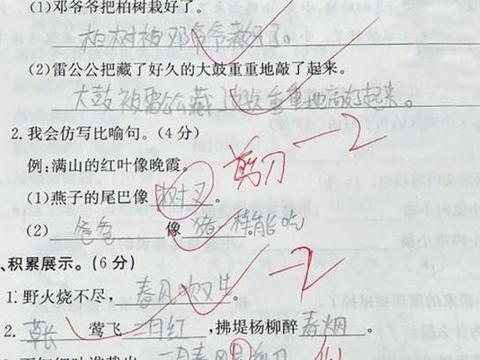 (1)邓爷爷把柏树栽好了。
柏树被邓爷爷栽好了。
(2)雷公公把藏了好久的大鼓重重地敲了起来。
大鼓被雷公公 重重地敲起来。
2.我会仿写比喻句。(4分)
例:满山的红叶像晚霞。 剪刀 -2
(1)燕子的尾巴像 树叉 。
(2) 爸爸 像 猪一样能吃
、积累展示。(6分) -2
1.野火烧不尽, 春风吹又生 。
2. 草长 莺飞 二月 ,拂堤杨柳醉 春烟
二月春风似剪刀